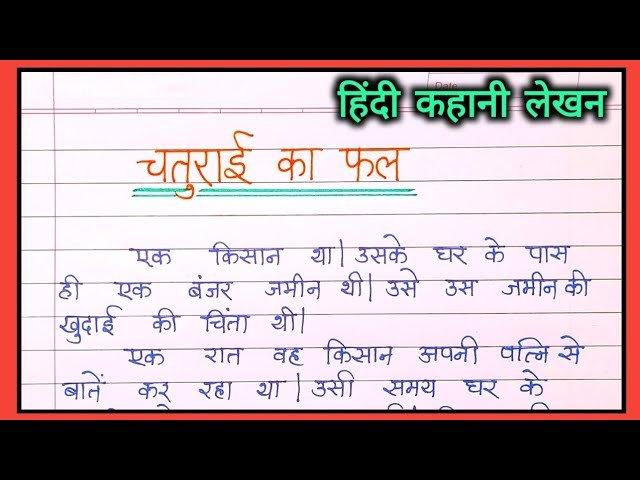 Date
हिंदी कहानी लेखन
चतुराई का फल
एक किसान था। उसके घर के पास
ही एक बंजर जमीन थी। उसे उस जमीन की
खुदाई की चिंता थी।
एक रात वह किसान अपनी पत्नि से
बातें कर रहा था। उसी समय घर के